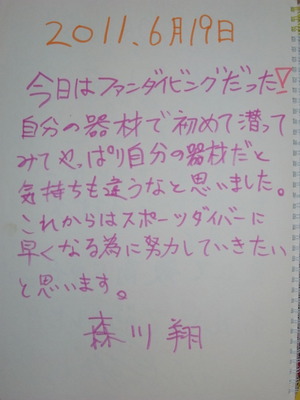 2011.6月19日
今日はファンダイビングだった!
自分の器材で初めて潜って
みてやっぱり自分の器材だと
気持ちも違うなと思いました。
これからはスポーツダイバーに
早くなる為に努力していきたい
と思います。
森川翔